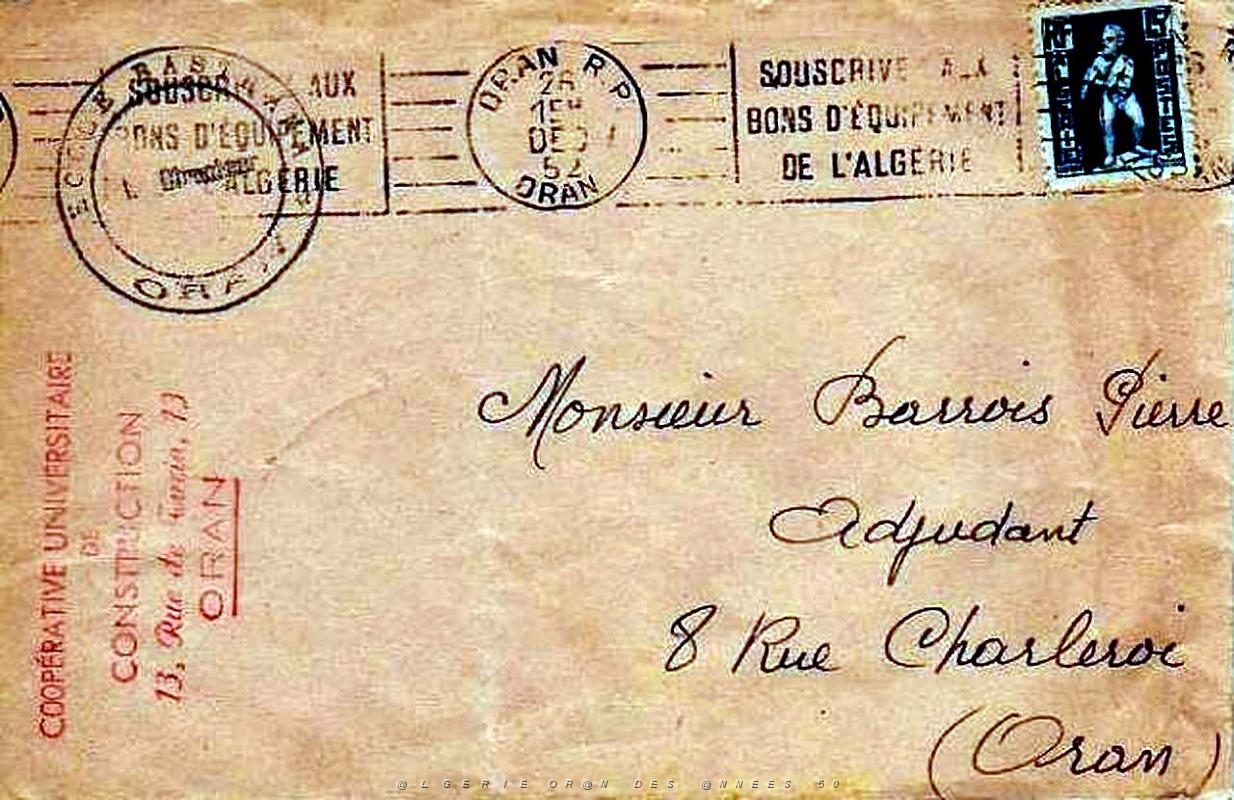 SOUSCR AUX
BONS D'ÉQUIPEMENT
ALGERIE
ECOLE
Directeur
ORAN
ORAN R.P
26
15H
DEC
52
ORAN
SOUSCRIVE
BONS D'ÉQUIPEMENT
DE L'ALGÉRIE
COOPÉRATIVE UNIVERSITAIRE
DE
CONSTRUCTION
13, Rue de Turin, 13
ORAN
Monsieur Barrois Pierre
Adjudant
8 Rue Charleroi
(Oran)
@LGERIE OR@N DES @NNEES 50